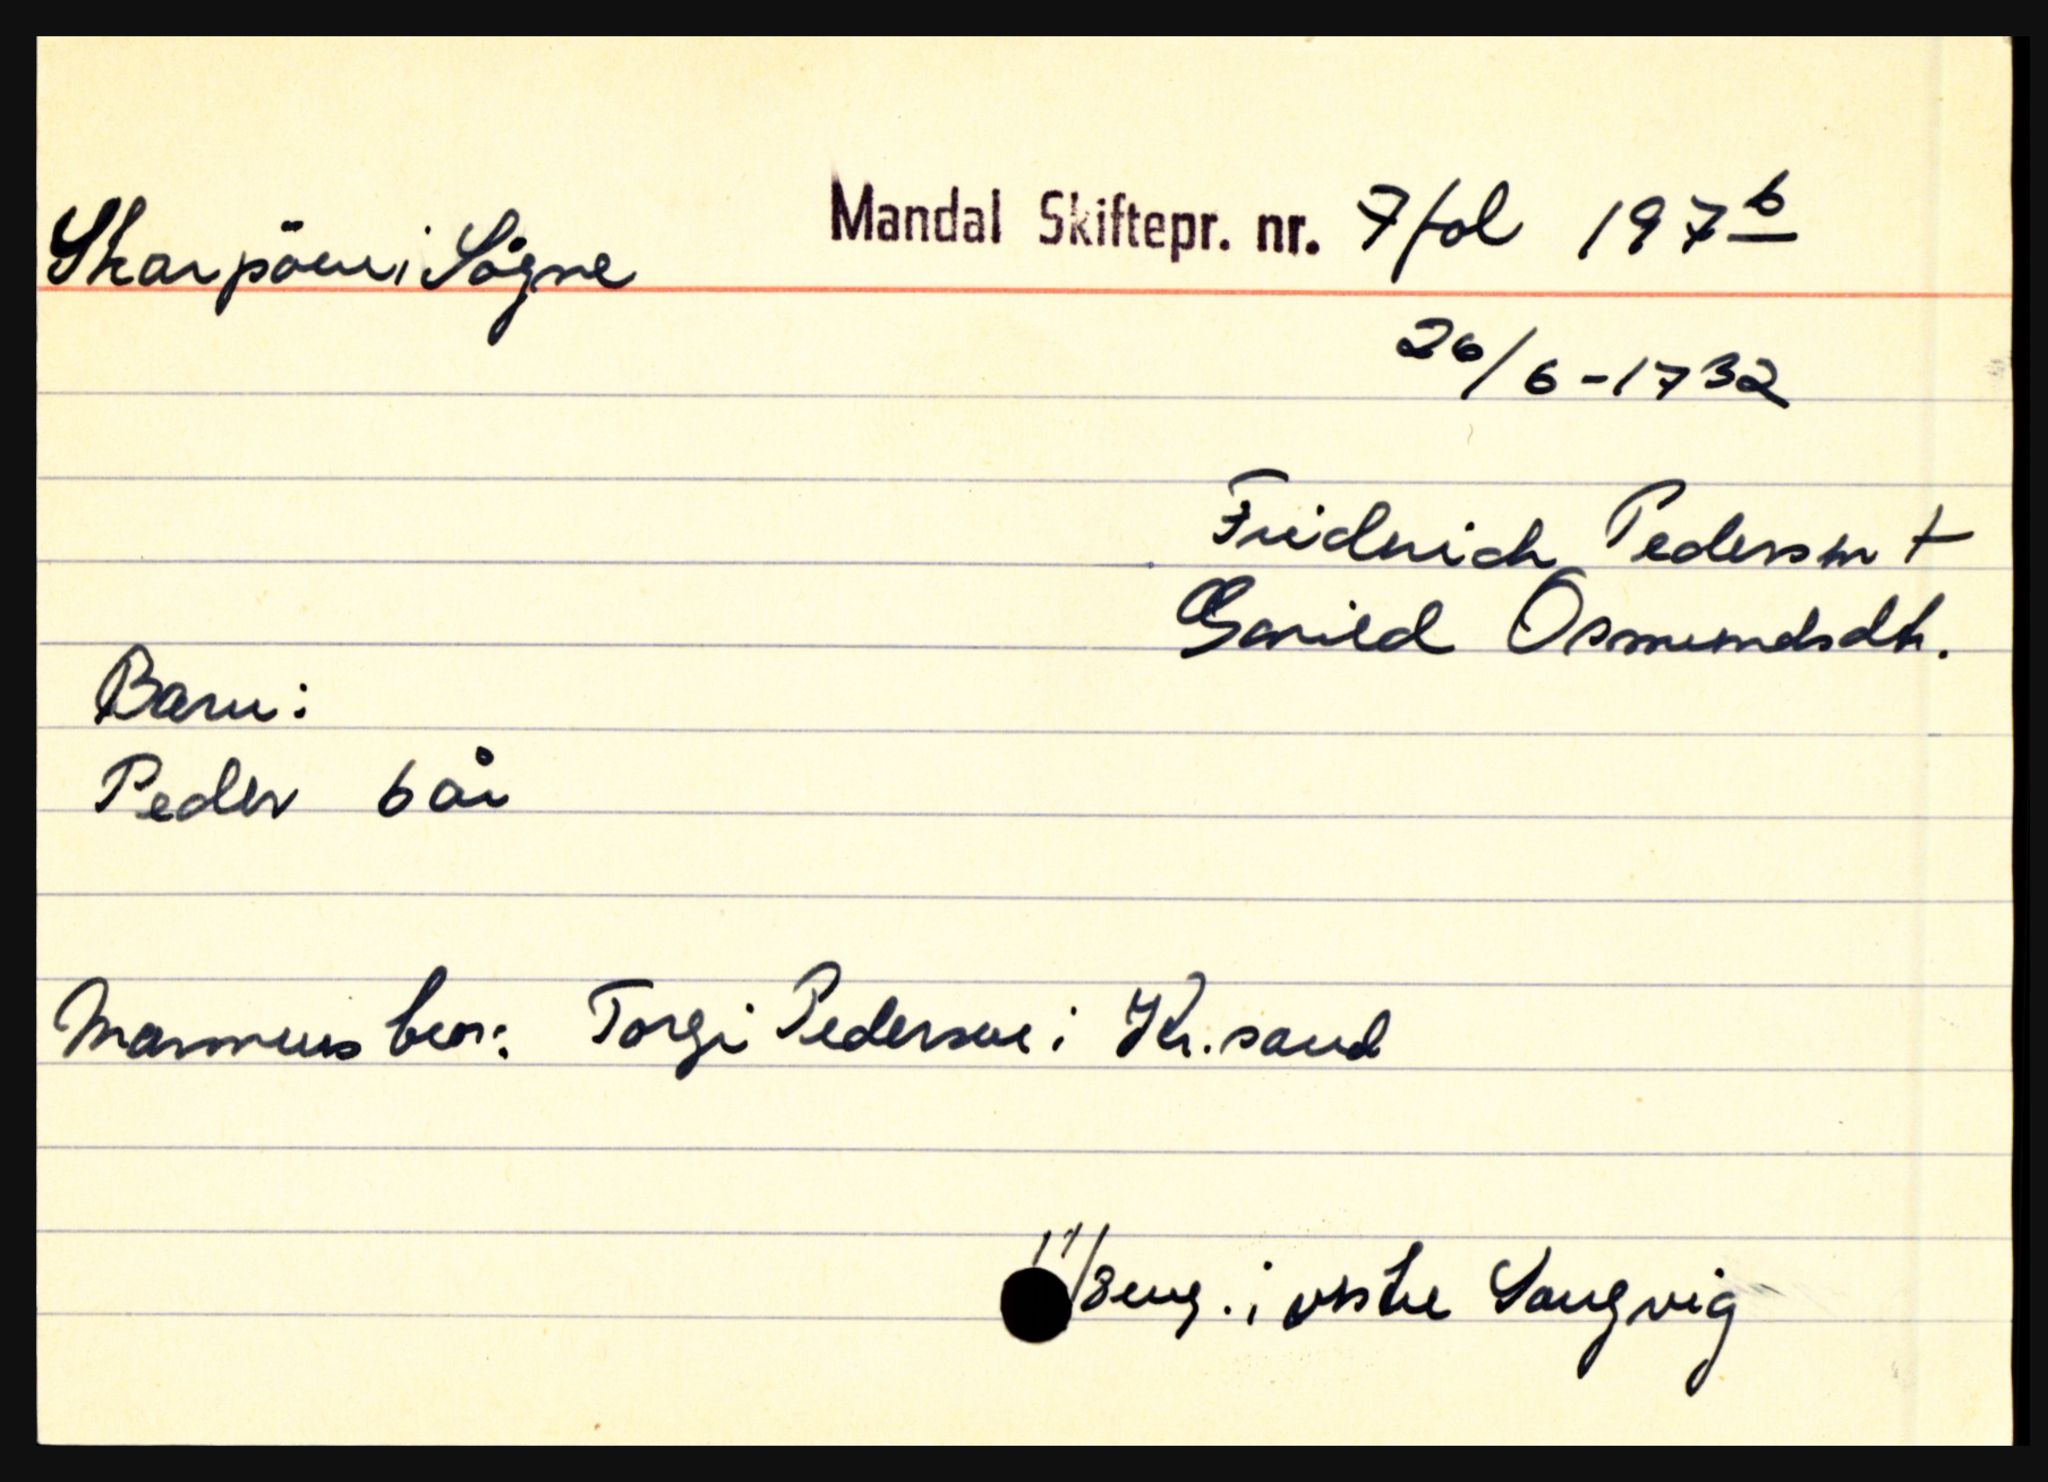 Skarpöen i Sögne Mandal Skiftepr. nr. 7 fol 197 b
26/6-1732
Fridrich Pedersen +
Gunild Osmundsdtr.
Barn:
Peder 6 år
Mannens bror: Torgi Pedersen i Kr.sand
11/8 eng. i vestre Songvig